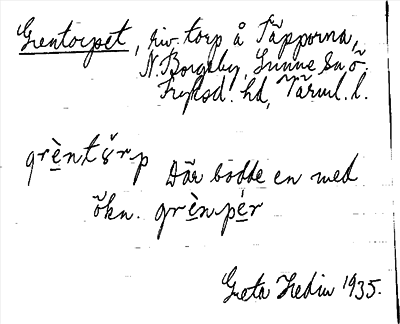 Grentorpet, riv. torp å Täpporna,
N. Borgeby, Sunne sn ö.
Fryksd. hd, Värml. l.
grèntŏrp Där bodde en med
ökn. grènpér
Greta Hedin 1935.